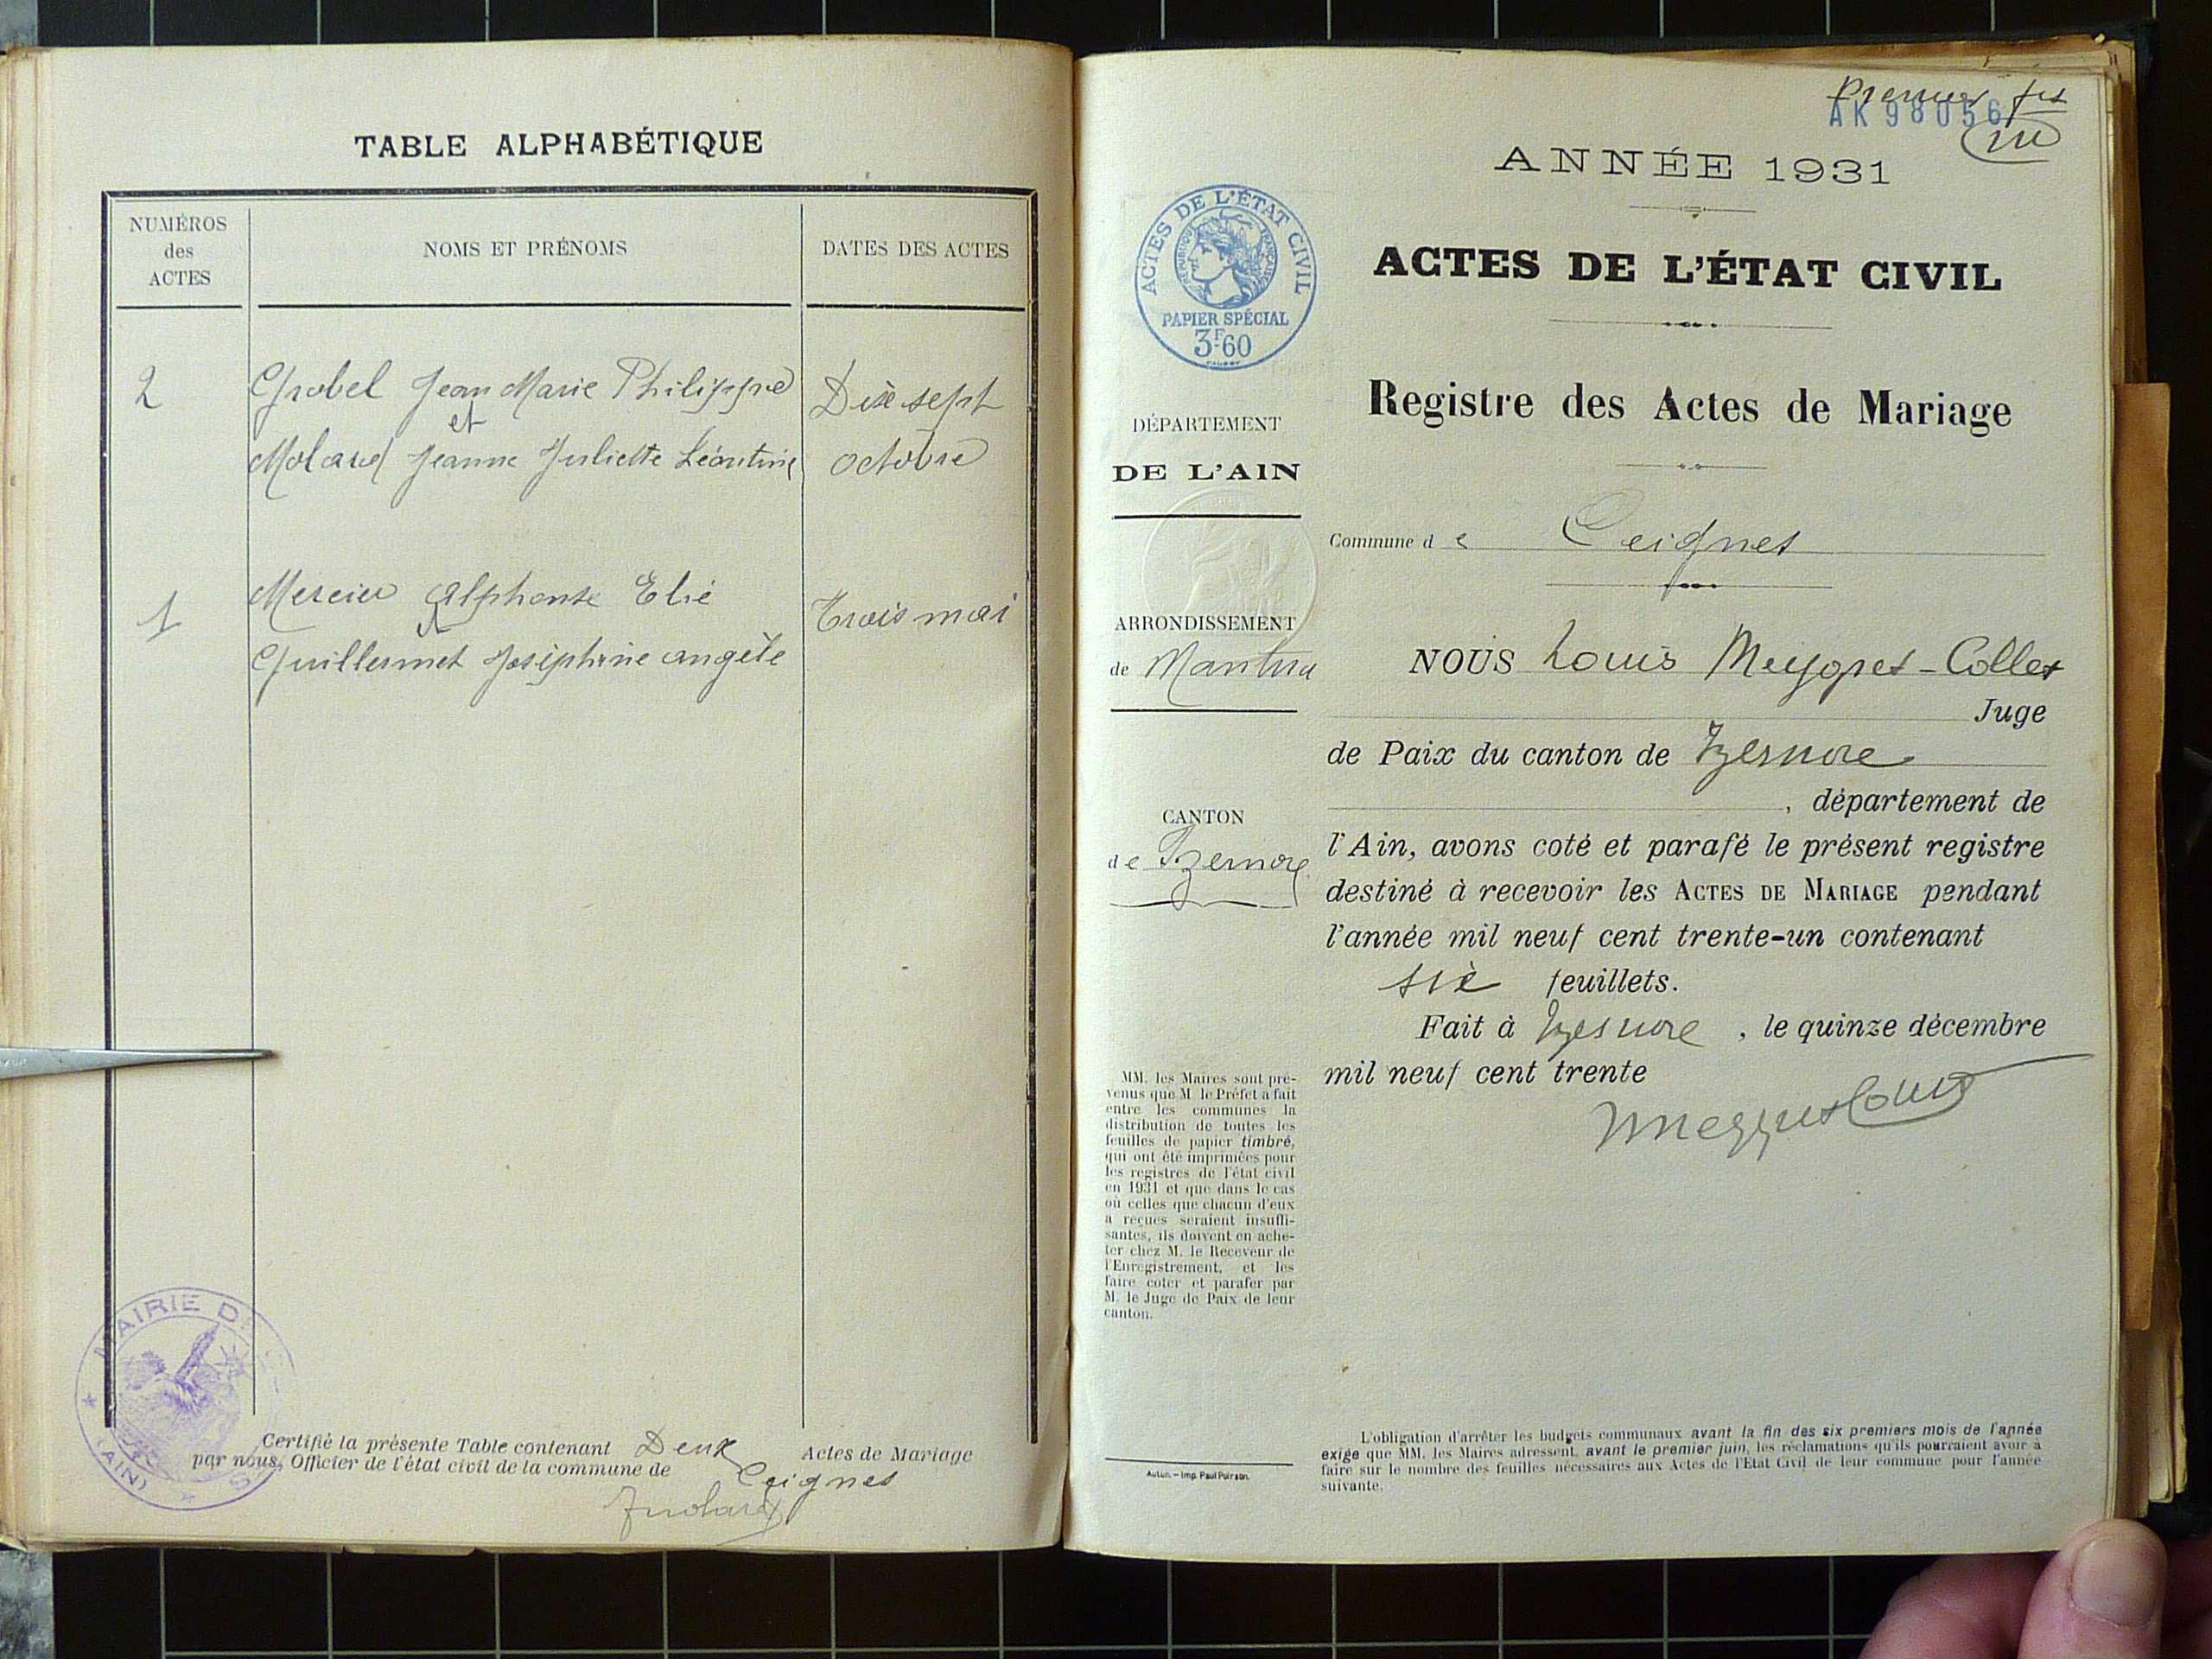 TABLE ALPHABÉTIQUE
NUMÉROS
des
ACTES
NOMS ET PRÉNOMS
DATES DES ACTES
2
Grobel Jean Marie Philippe
et
Molard Jeanne Juliette Léontine
Dix sept
octobre
1
Mercier Alphonse Elie
et
Guillermet Joséphine angèle
Trois mai
MAIRIE DE
(AIN)
Certifié la présente Table contenant Deux Actes de Mariage
par nous, Officier de l'état civil de la commune de Ceignes
Premier
AK 98056
ANNÉE 1931
ACTES DE L'ÉTAT CIVIL
RÉPUBLIQUE FRANÇAISE
PAPIER SPÉCIAL
3F60
ACTES DE L'ÉTAT CIVIL
Registre des Actes de Mariage
DÉPARTEMENT
DE L'AIN
Commune d e Ceignes
ARRONDISSEMENT
de Mantua
NOUS Louis Meygret-Collet
Juge
de Paix du canton de Izernore
, département de
CANTON
de Izernore
l'Ain, avons coté et parafé le présent registre
destiné à recevoir les ACTES DE MARIAGE pendant
l'année mil neuf cent trente-un contenant
six feuillets.
Fait à Izernore , le quinze décembre
mil neuf cent trente
MM. les Maires sont pré-
venus que M. le Préfet a fait
entre les communes la
distribution de toutes les
feuilles de papier timbré,
qui ont été imprimées pour
les registres de l'état civil
en 1931 et que dans le cas
où celles que chacun d'eux
a reçues seraient insuffi-
santes, ils doivent en ache-
ter chez M. le Receveur de
l'Enregistrement, et les
faire coter et parafer par
M. le Juge de Paix de leur
canton.
Autun. – Imp. Paul Poirson.
L'obligation d'arrêter les budgets communaux avant la fin des six premiers mois de l'année
exige que MM. les Maires adressent, avant le premier juin, les réclamations qu'ils pourraient avoir à
faire sur le nombre des feuilles nécessaires aux Actes de l'Etat Civil de leur commune pour l'année
suivante.